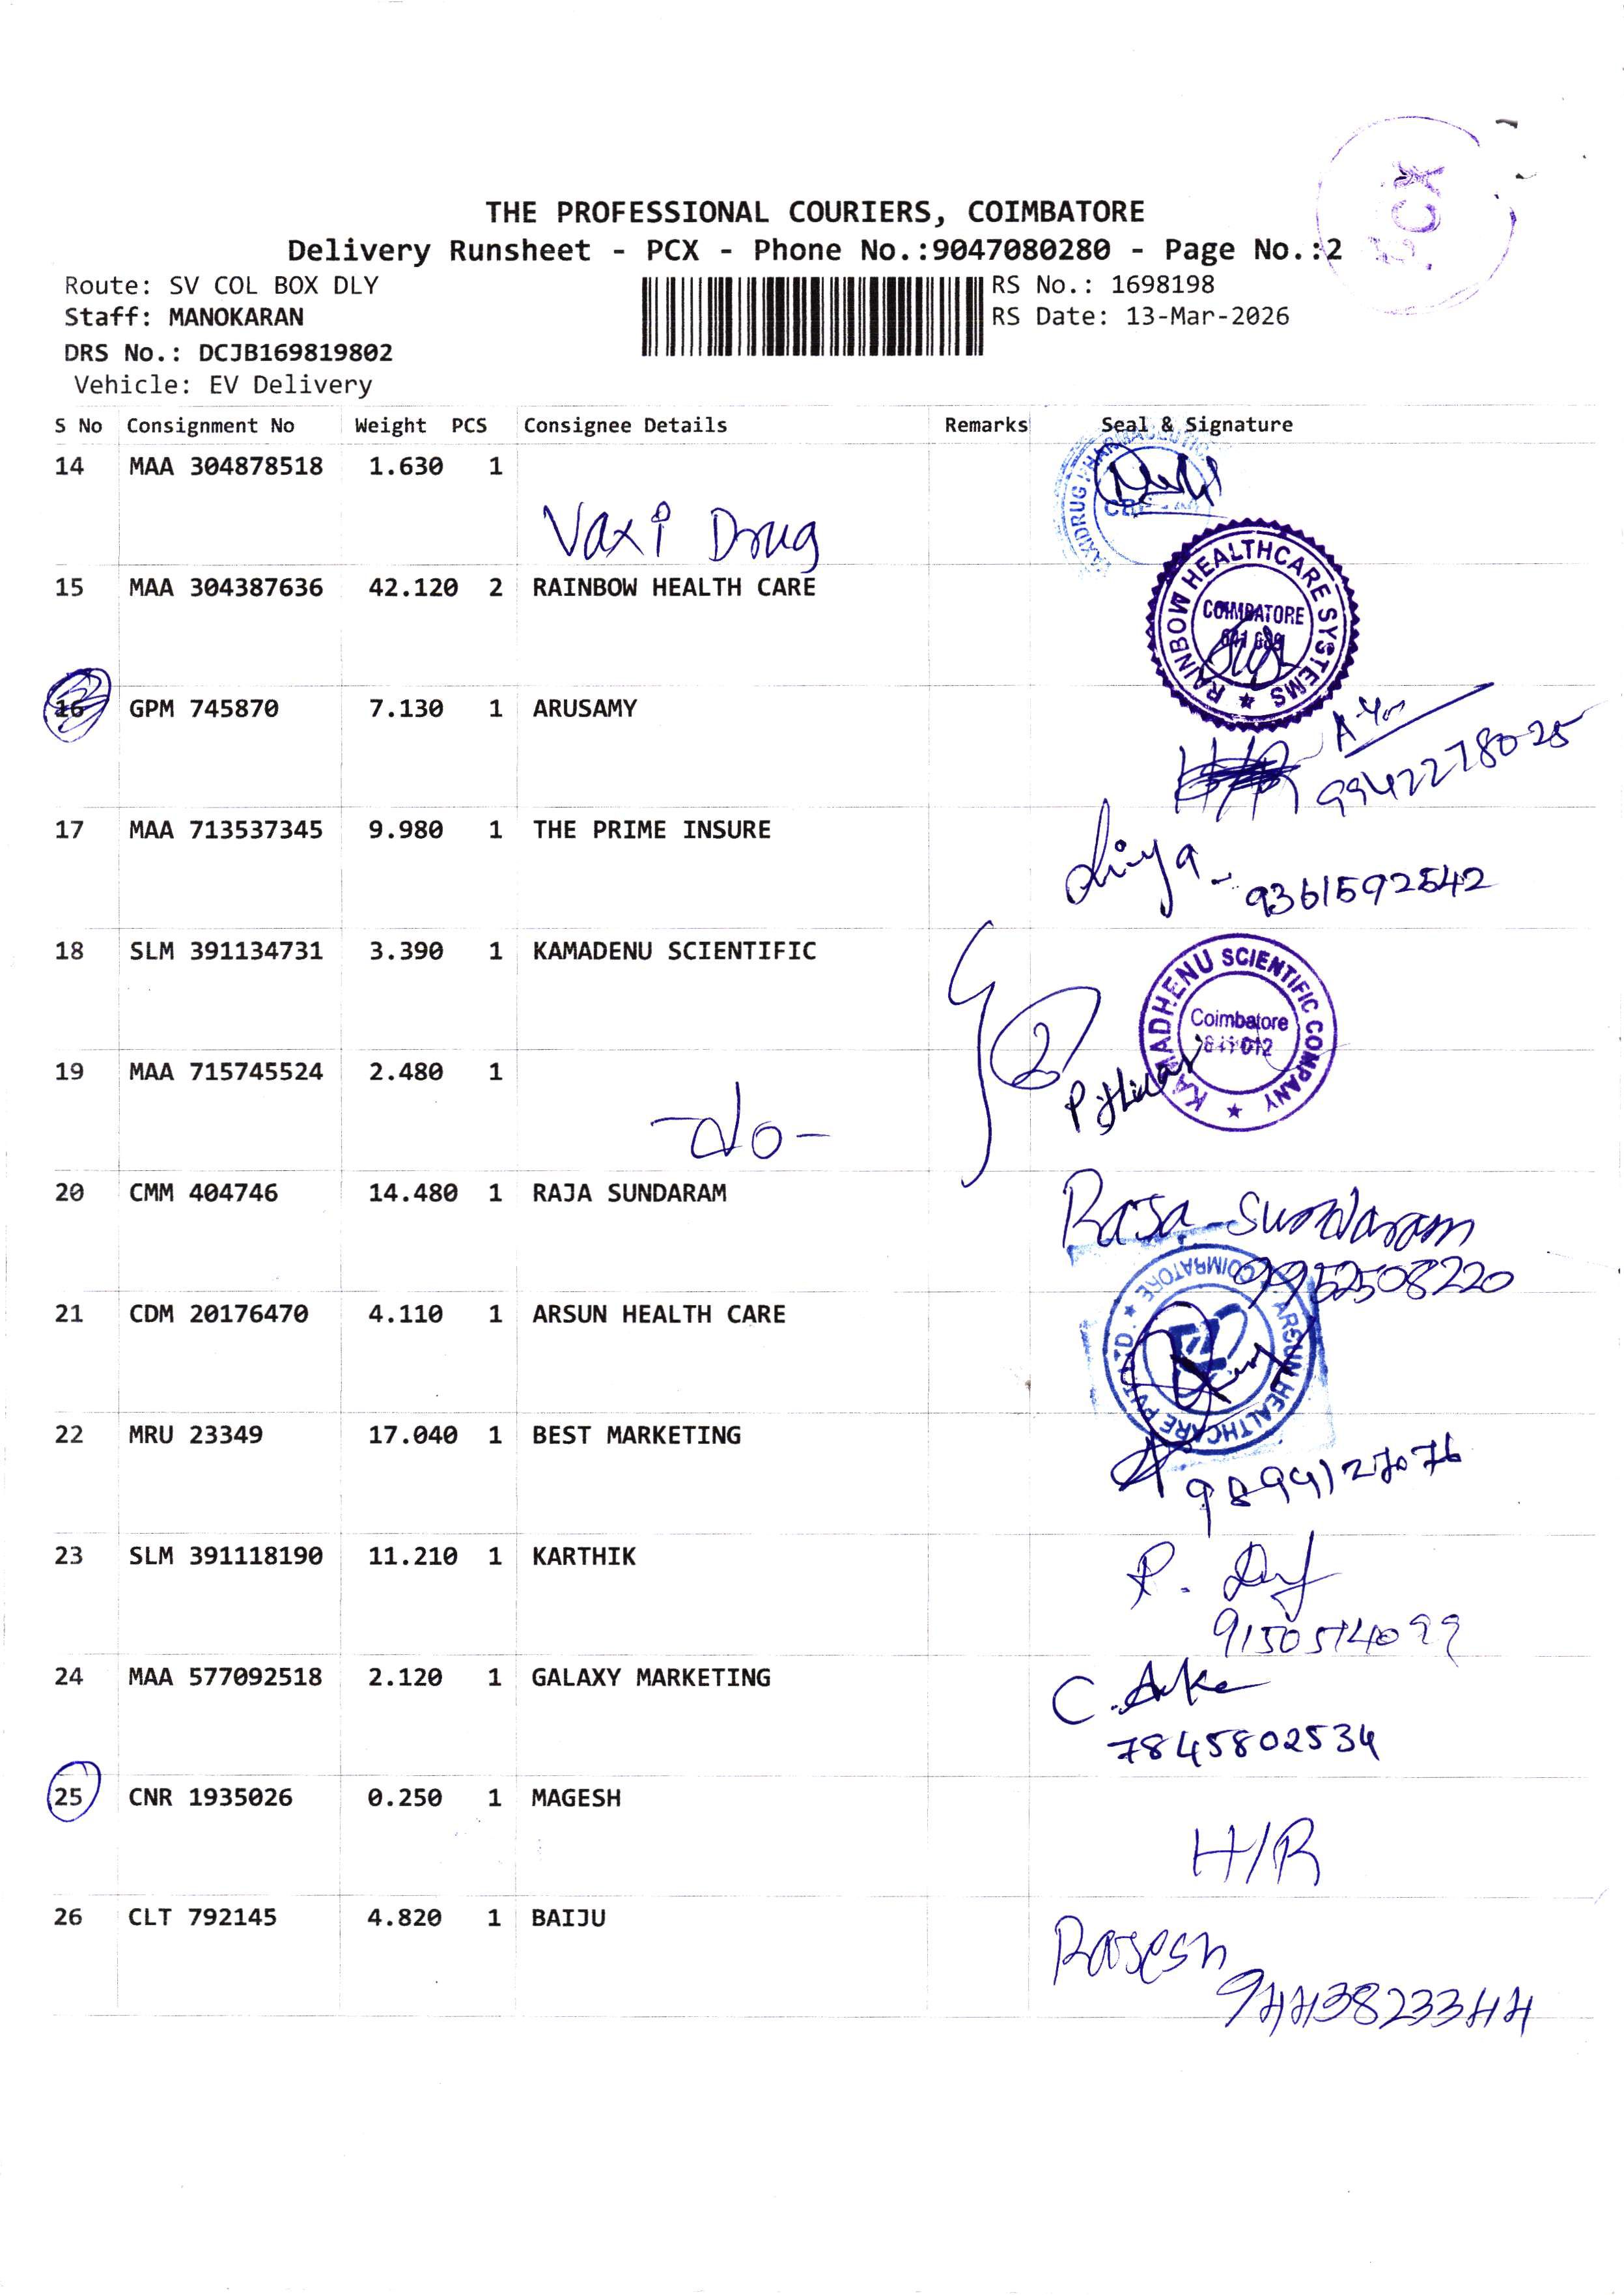 PCX
THE PROFESSIONAL COURIERS, COIMBATORE
Delivery Runsheet - PCX - Phone No.:9047080280 - Page No.:2
Route: SV COL BOX DLY
RS No.: 1698198
Staff: MANOKARAN
RS Date: 13-Mar-2026
DRS No.: DCJB169819802
Vehicle: EV Delivery
S No Consignment No Weight PCS Consignee Details Remarks Seal & Signature
14 MAA 304878518 1.630 1
Vaxi Drug
15 MAA 304387636 42.120 2 RAINBOW HEALTH CARE
RAINBOW HEALTHCARE SYSTEMS
COIMBATORE
16 GPM 745870 7.130 1 ARUSAMY
9942278025
17 MAA 713537345 9.980 1 THE PRIME INSURE
9361592542
18 SLM 391134731 3.390 1 KAMADENU SCIENTIFIC
KAMADHENU SCIENTIFIC COMPANY
Coimbatore
2
19 MAA 715745524 2.480 1
-do-
20 CMM 404746 14.480 1 RAJA SUNDARAM
Raja Sundaram
9952508220
21 CDM 20176470 4.110 1 ARSUN HEALTH CARE
ARSUN HEALTHCARE PVT LTD COIMBATORE
22 MRU 23349 17.040 1 BEST MARKETING
23 SLM 391118190 11.210 1 KARTHIK
24 MAA 577092518 2.120 1 GALAXY MARKETING
7845802534
25 CNR 1935026 0.250 1 MAGESH
H/R
26 CLT 792145 4.820 1 BAIJU
Rajesh
9443823344